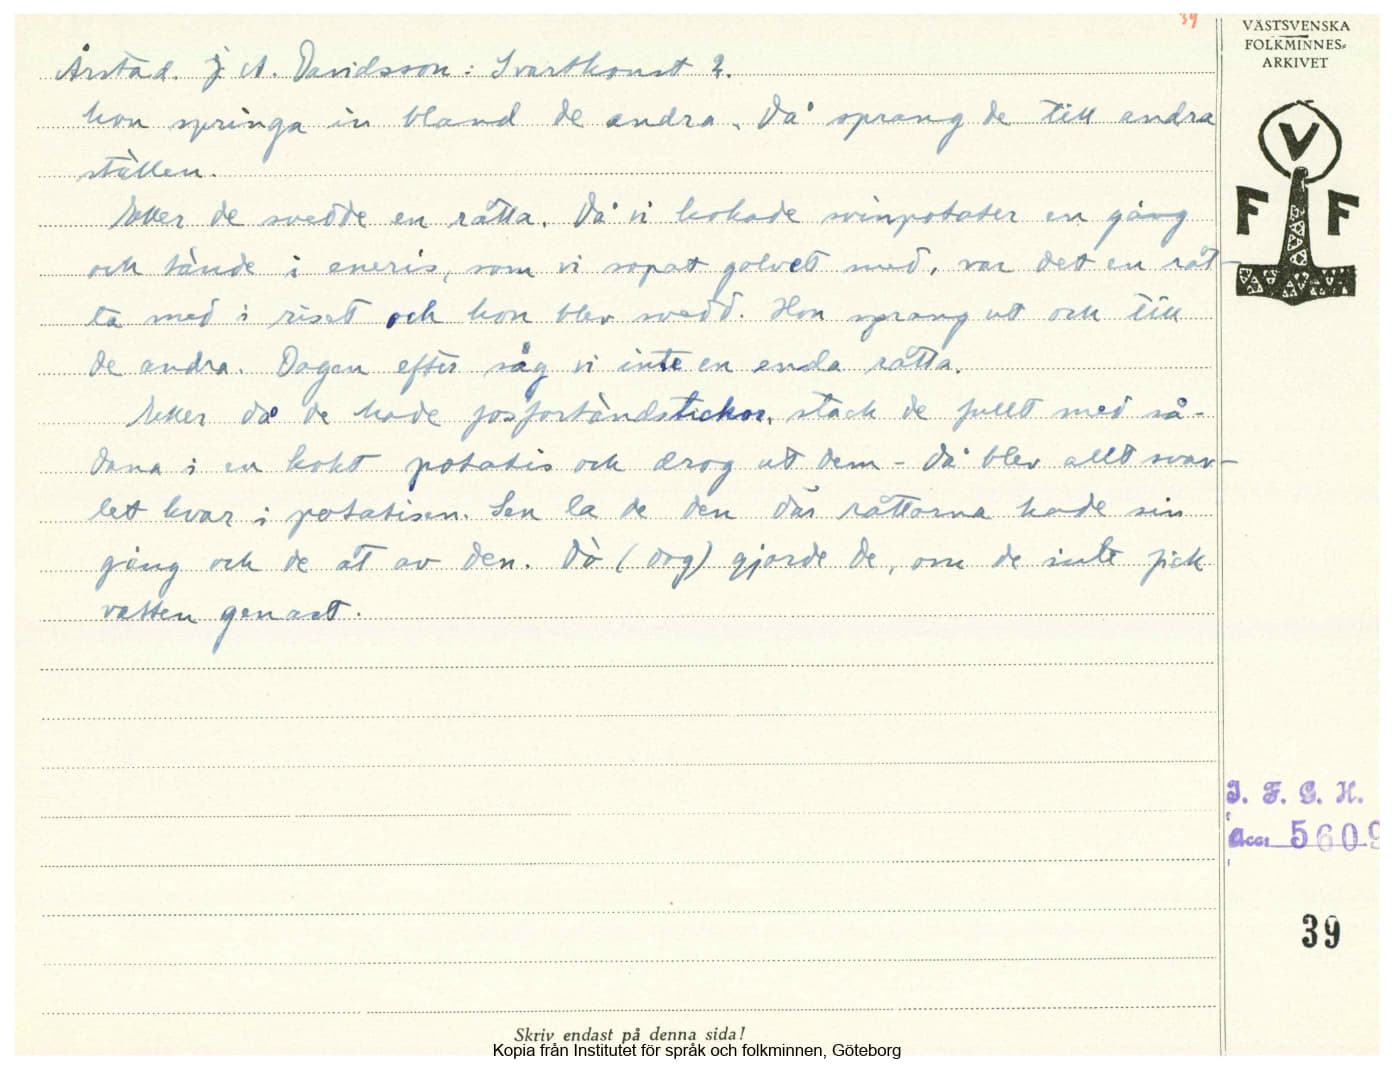 39
VÄSTSVENSKA
FOLKMINNES-
ARKIVET
Årstad. J. A. Davidsson: Svartkonst 2.
hon springa in bland de andra. Då sprang de till andra
ställen.
Eller de svedde en råtta. Då vi kokade svinpotater en gång
och tände i eneris, som vi sopat golvet med, var det en råt-
ta med i riset och hon blev svedd. Hon sprang ut och till
de andra. Dagen efter såg vi inte en enda råtta.
Eller då de hade fosfortändstickor, stack de fullt med så-
dana i en kokt potatis och drog ut dem - då blev allt svav-
let kvar i potatisen. Sen la de den där råttorna hade sin
gång och de åt av den. Dö (dog) gjorde de, om de inte fick
vatten genast.
V
F F
I. F. G. H.
Acc: 5609
39
Skriv endast på denna sida!
Kopia från Institutet för språk och folkminnen, Göteborg